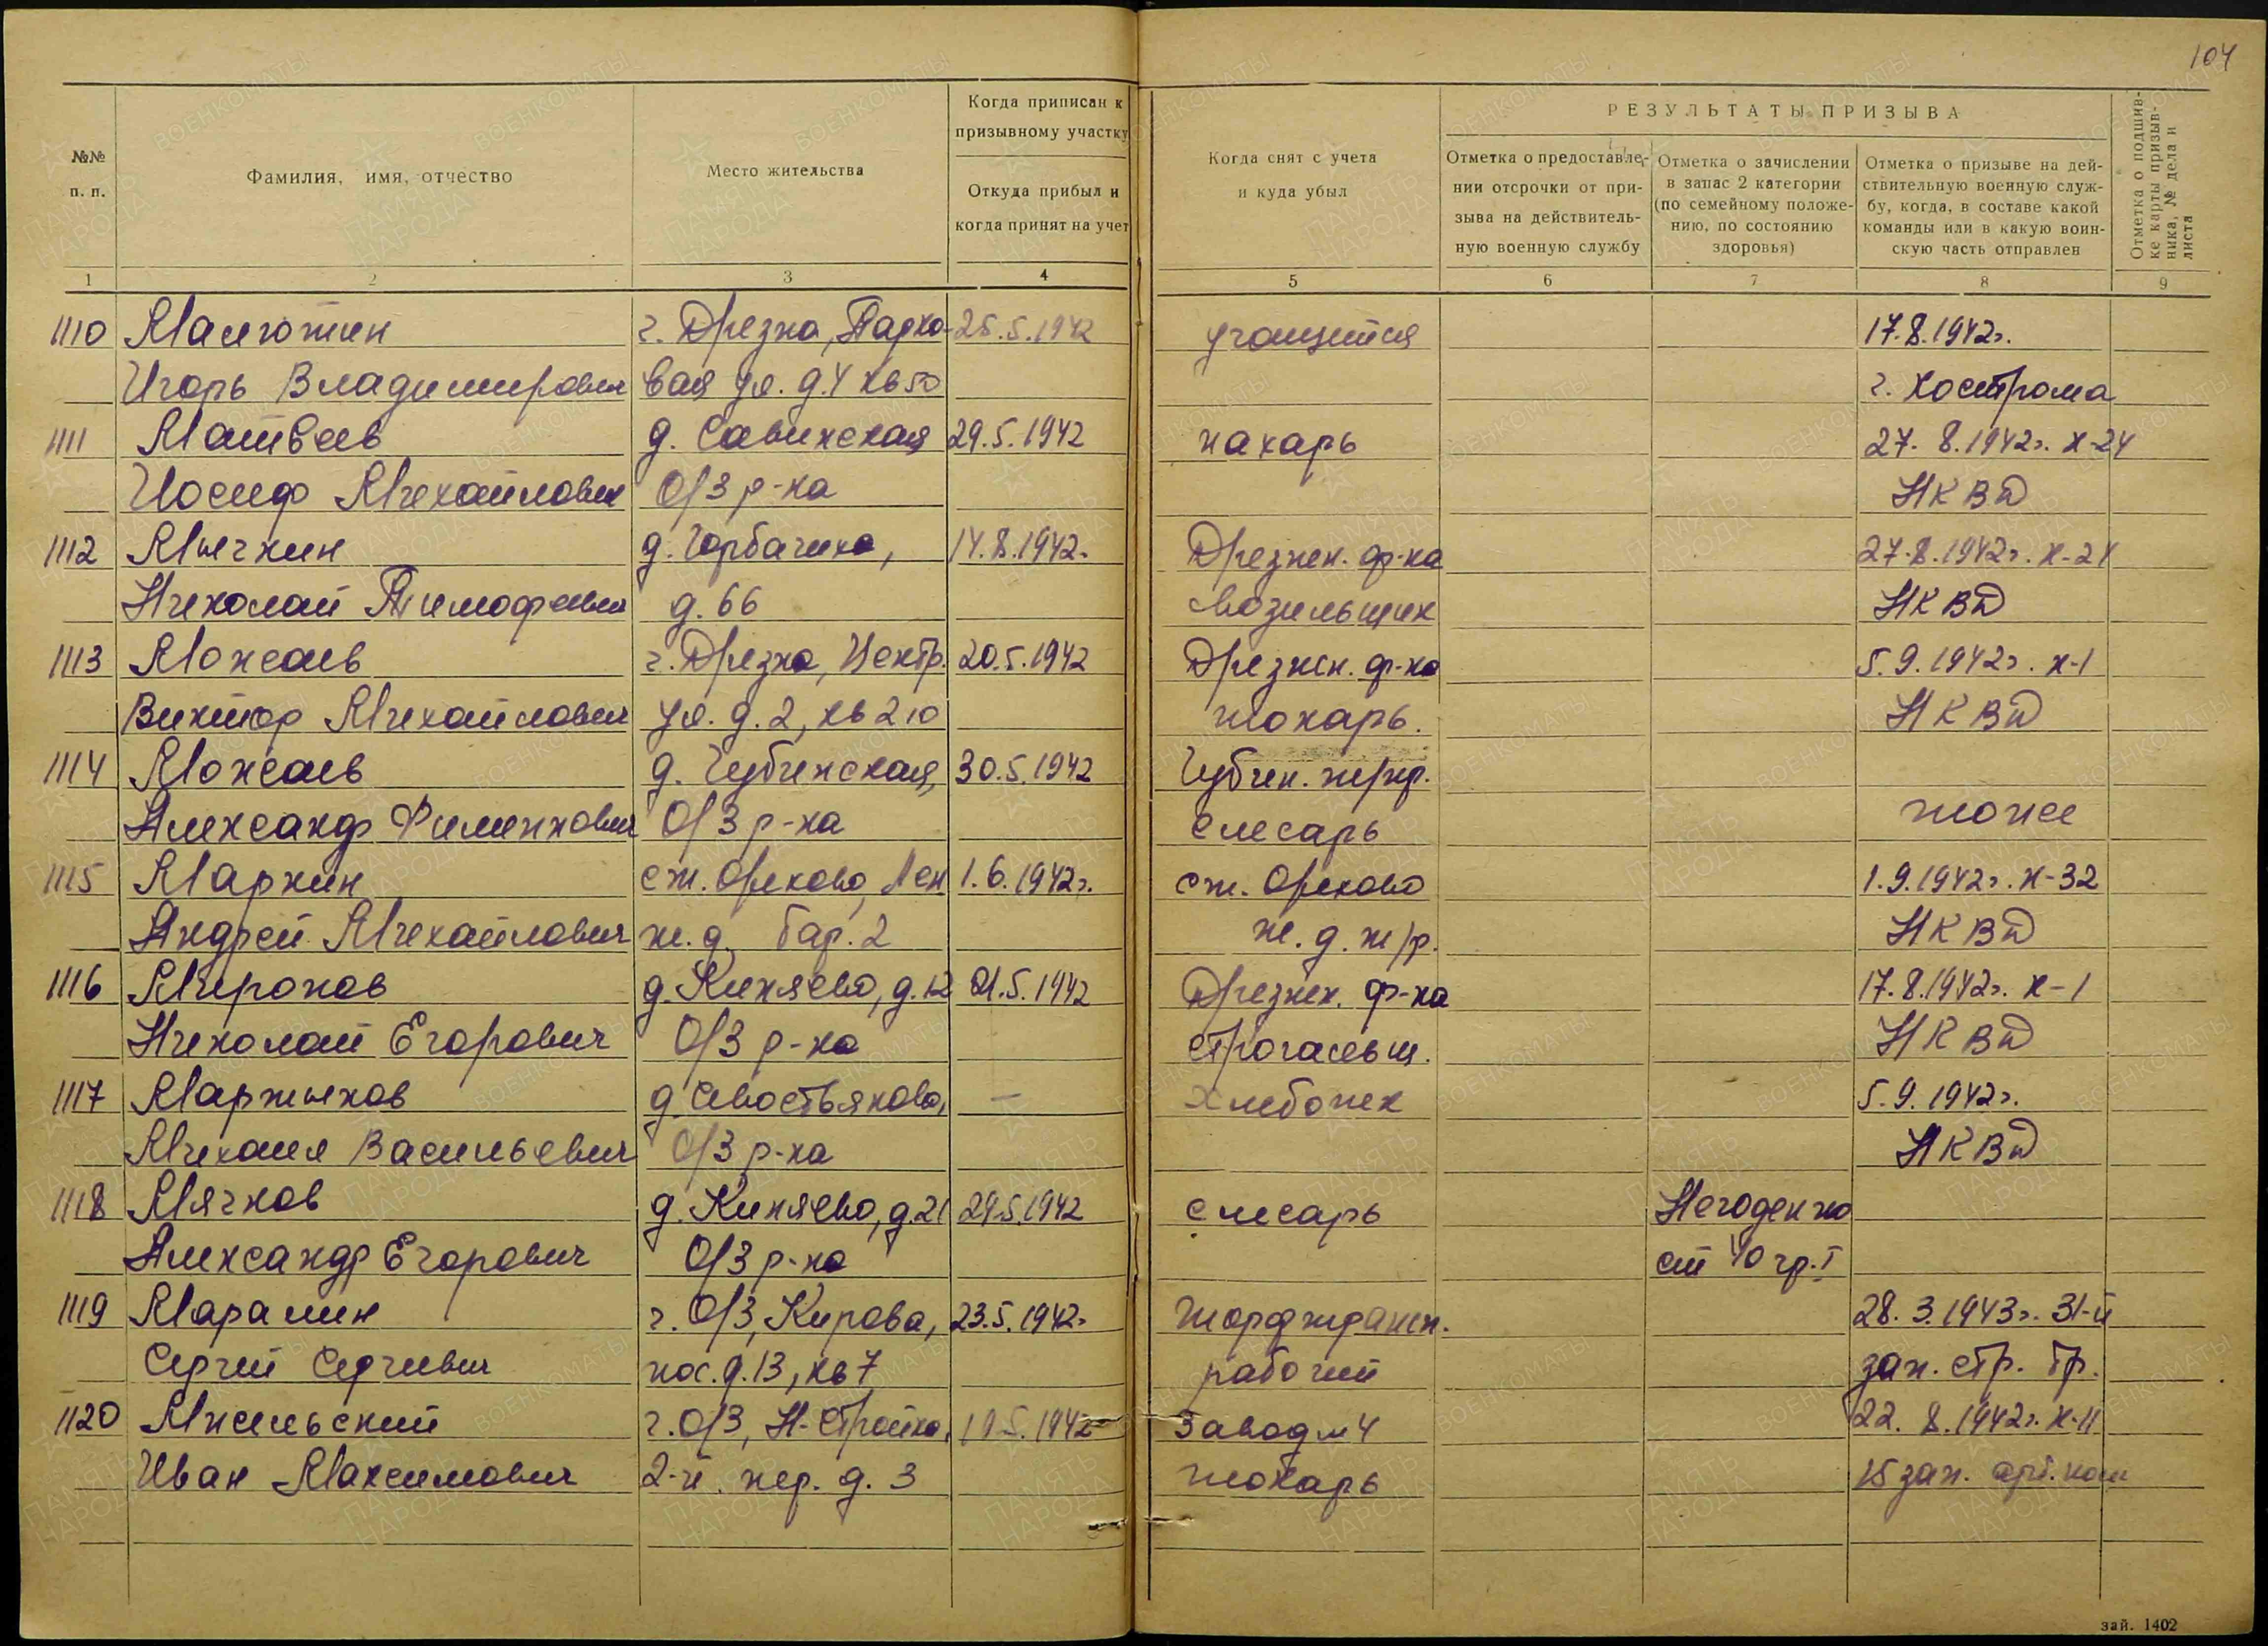 104
№№ п. п.
Фамилия, имя, отчество
Место жительства
Когда приписан к призывному участку
Откуда прибыл и когда принят на учет
Когда снят с учета и куда убыл
РЕЗУЛЬТАТЫ ПРИЗЫВА
Отметка о предоставле-
нии отсрочки от при-
зыва на действитель-
ную военную службу
Отметка о зачислении
в запас 2 категории
(по семейному положе-
нию, по состоянию
здоровья)
Отметка о призыве на дей-
ствительную военную служ-
бу, когда, в составе какой
команды или в какую воин-
скую часть отправлен
Отметка о подшив-
ке карты призыв-
ника, № дела и
листа
1 2 3 4 5 6 7 8 9
1110 Малютин г. Дрезна, Парко- 25.5.1942 учащийся 17.8.1942г.
Игорь Владимирович вая ул. д.4 кв 50 г. Кострома
1111 Матвеев д. Савинская 29.5.1942 пахарь 27.8.1942г. к-24
Иосиф Михайлович О/З р-на НКВД
1112 Мычкин д. Горбачиха, 14.8.1942г. Дрезнен. ф-ка 27.8.1942г. к-24
Николай Тимофеевич д. 66 возильщик НКВД
1113 Можаев г. Дрезна, Центр. 20.5.1942 Дрезнен. ф-ка 5.9.1942г. к-1
Виктор Михайлович ул. д. 2, кв 210 токарь. НКВД
1114 Можаев д. Губинская, 30.5.1942 Губин.
Александр Филиппович О/З р-на слесарь тоже
1115 Маркин ст. Орехово, Лен 1.6.1942г. ст. Орехово 1.9.1942г. к-32
Андрей Михайлович ж.д. бар. 2 ж.д. НКВД
1116 Миронов д. Киняево, д. 12 21.5.1942 Дрезнен. ф-ка 17.8.1942г. к-1
Николай Егорович О/З р-на строгальщ. НКВД
1117 Мартынов д. Севостьяново, — Хлебопек 5.9.1942г.
Михаил Васильевич О/З р-на НКВД
1118 Мячков д. Киняево, д. 21 29.5.1942 слесарь Негоден по
Александр Егорович О/З р-на ст 40 гр. I
1119 Маралин г. О/З, Кирова, 23.5.1942г. 28.3.1943г. 31-й
Сергей Сергеевич пос. д. 13, кв 7 рабочий зап. стр. бр.
1120 Мисельский г. О/З, Н-Стройка, 19.5.1942 Завод № 4 22.8.1942г. к-11
Иван Максимович 2-й пер. д. 3 токарь 15 зап. арт. полк
зай. 1402